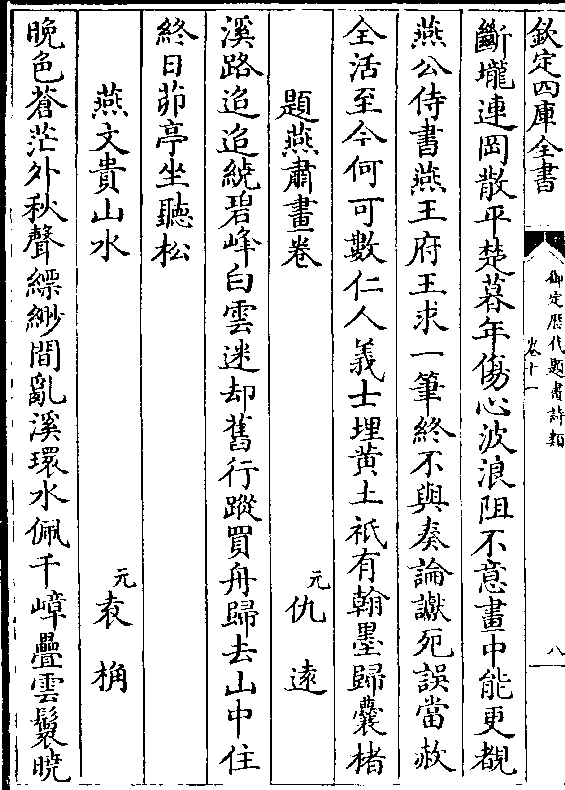 欽定四庫全書
御定歷代題畫詩類
卷十一
八
斷壠連岡散平楚暮年傷心波浪阻不意畫中能更覩
燕公侍書燕王府王求一筆終不與奏論讞死誤當赦
全活至今何可數仁人義士埋黄土秖有翰墨歸囊楮
題燕肅畫卷 元仇逺
溪路迢迢繞碧峰白雲迷却舊行蹤買舟歸去山中住
終日茆亭坐聽松
燕文貴山水 元袁桷
晚色蒼茫外秋聲縹緲間亂溪環水佩千嶂疊雲鬟曉